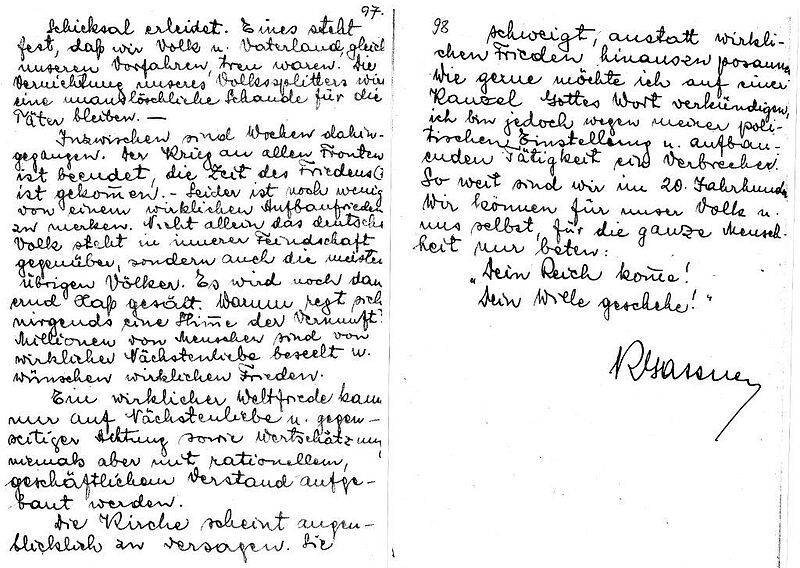 97.
Schicksal erleidet. Eines steht
fest, daß wir Volk u. Vaterland, gleich
unseren Vorfahren, treu waren. Die
Vernichtung unseres Volkssplitters wird
eine unauslöschliche Schande für die
Täter bleiben. —
Inzwischen sind Wochen dahin-
gegangen. Der Krieg an allen Fronten
ist beendet, die Zeit des Friedens
ist gekom̄en. – Leider ist noch wenig
von einem wirklichen Aufbaufrieden
zu merken. Nicht allein das deutsche
Volk steht in innerer Feindschaft
gegenüber, sondern auch die meisten
übrigen Völker. Es wird noch dau
ernd Haß gesät. Warum regt sich
nirgends eine Stim̄e der Vernunft?
Millionen von Menschen sind von
wirklicher Nächstenliebe beseelt u.
wünschen wirklichen Frieden.
Ein wirklicher Weltfriede kann
nur auf Nächstenliebe u. gegen-
seitiger Achtung sowie Wertschätzung
niemals aber mit rationellem,
geschäftlichem Verstand aufge-
baut werden.
Die Kirche scheint augen-
blicklich zu versagen. Sie
98
schweigt, anstatt wirkli-
chen Frieden hinauszuposaunen
Wie gerne möchte ich auf einer
Kanzel Gottes Wort verkündigen,
ich bin jedoch wegen meiner poli-
tischen Einstellung u. aufbau-
enden Tätigkeit ein Verbrecher.
So weit sind wir im 20. Jahrhundert
Wir können für unser Volk u.
uns selbst, für die ganze Mensch-
heit nur beten:
„Dein Reich kom̄e!
Dein Wille geschehe!"
RGassner